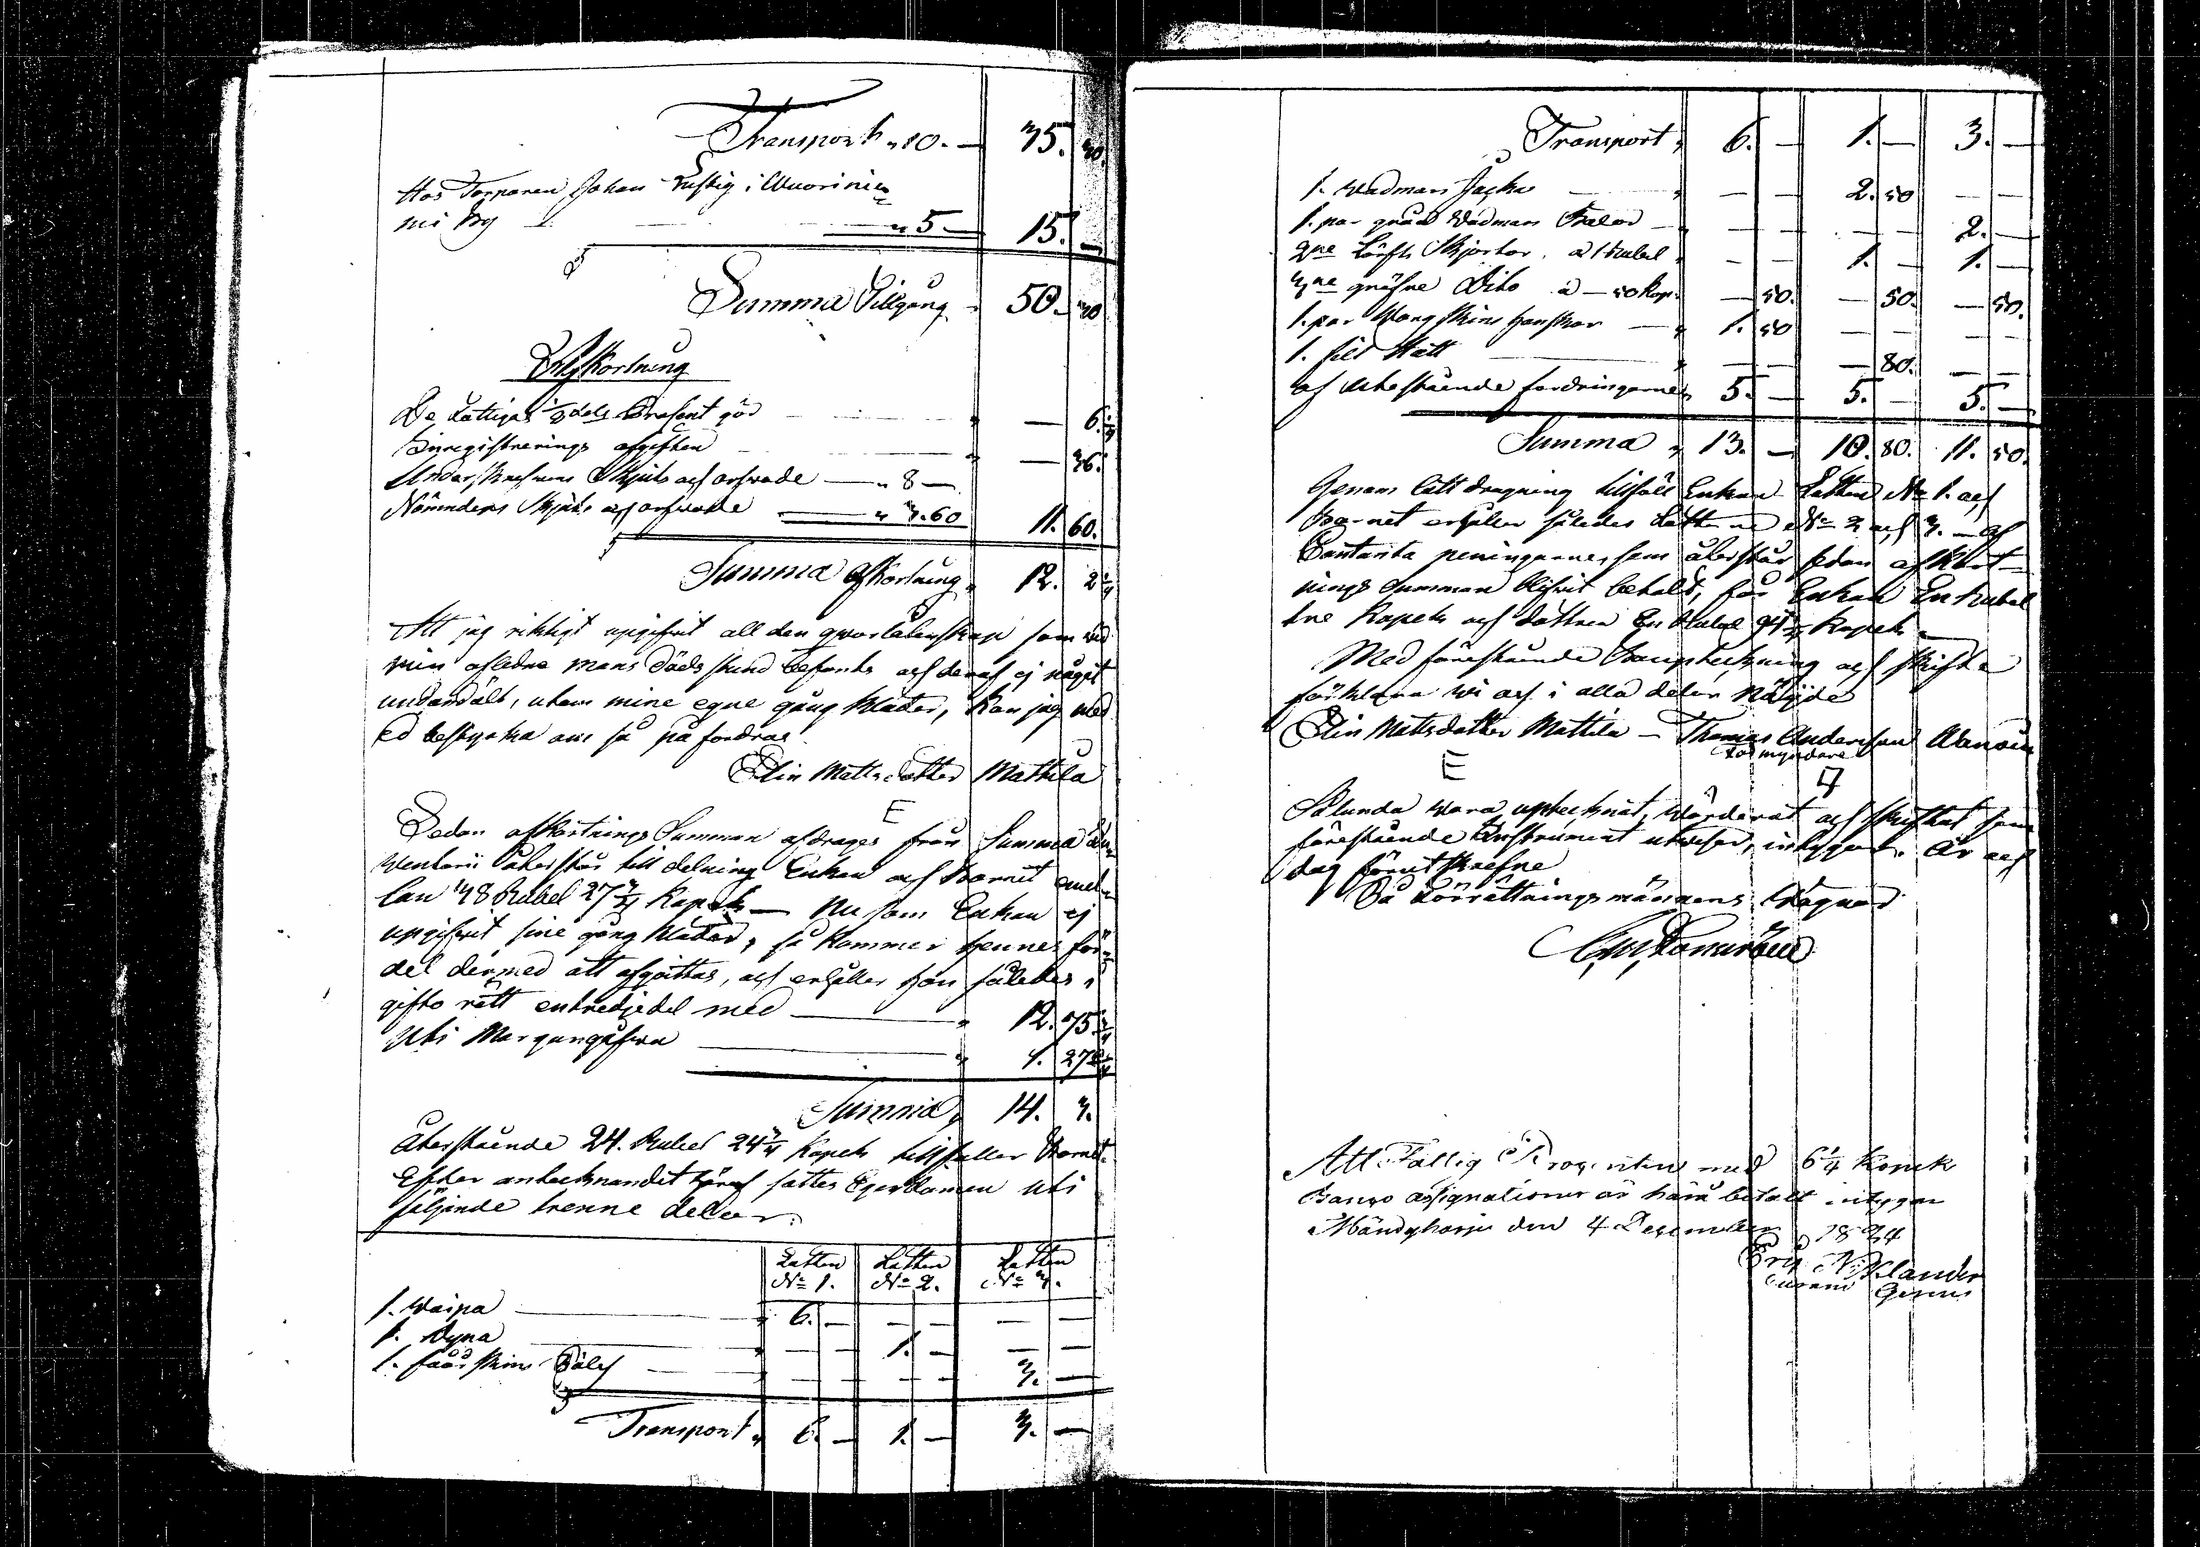 Transport " 10. — 35. 30.
Hos Torparen Johan Lustig i Wuorinie
mi By " 5 — 15. —
Summa Tillgång 50. 30
Afkortning
De Fattigas 1/8 dels Procent gör — 6 1/4
Inregistrerings afgiften — 36.
Underskrefvens Skjuts och arfwode — " 8 —
Nämndens Skjuts och arfwode " 3. 60 11. 60.
Summa Afkortning " 12. 2 1/4
Att jag riktigt upgifvit all den qvarlåtenskap som vid
min aflidne mans dödsstund befants och deraf ej något
undandålt, utom mine egne gång kläder, kan jag med
Ed bestyrka om så på fordras.
Elin Mattsdotter Mattila
E
Sedan afkortnings Summan afdrages från Summa In
ventarii återstår till delning Enkan och Barnet emel
lan 38 Rubel 27 3/4 Kopek — Nu som Enkan ej
upgifvit sine gång kläder, så kommer hennes för
del dermed att afgvittas, och erhåller hon således i
gifto rätt entredjedel med " 12. 75 3/4
Uti Morgongåfva " 1. 27 1/4
Summa " 14. 3.
Återstående 24. Rubel 24 3/4 Kopek tillfaller Barnet.
Efter antecknandet häraf sattes Egendomen uti
följande trenne delar.
Lotten N:o 1. Lotten N:o 2. Lotten N:o 3.
1. Waipa " 6. — — — — —
1. Dyna " — — 1. — — —
1. fåårskins Päls — — — — 3. —
Transport " 6. — 1. — 3. —
Transport " 6. — 1. — 3. —
1. Wadmars Jacka " — — 2. 50 — —
1. par gråa Wadmars Byxor — — — — 2. —
2ne Lärfts Skjortor, a 1 Rubel " — — 1. — 1. —
3ne gröfre Dito a — 50 Kop. — 50. — 50. — 50.
1. par Wargskins handskar — " 1. 50 — — — —
1. filt Hatt " — — — 80. — —
af Utestående fordringarne " 5. — 5. — 5. —
Summa " 13. — 10. 80. 11. 50.
Genom lått dragning tillföll Enkan Lotten N:o 1. och
Barnet erhåller således Lotterne N:o 2 och 3. — af
Contanta peningarne, som återstår sedan afkort-
nings Summan blifvit betald, får Enkan En Rubel
tre Kopek och dottren En Rubel 94 3/4 Kopek —
Med föreståande Bouptekning och skifte
förklara wi oss i alla delar nöjde
Elin Mattsdotter Mattila — Thomas Andersson
Förmyndare
E
Sålunda wara uptecknat, wärderat och skiftat som
förestående Instrument utwisar, intygar. År och
dag förutskrefne
På Förrättningsmännens wägnar
Att Fattig Procenten med 6 1/4 Kopek
Banco assignationer är härå betalt intygar
Mändyharju den 4 December 1834
Eric Wiklander